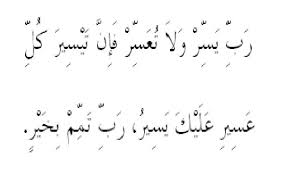 رَبِّ يَسِّرْ وَلَا تُعَسِّرْ فَإِنَّ تَيْسِيرَ كُلِّ
عَسِيرٍ عَلَيْكَ يَسِيرٌ، رَبِّ تَمِّمْ بِخَيْرٍ.